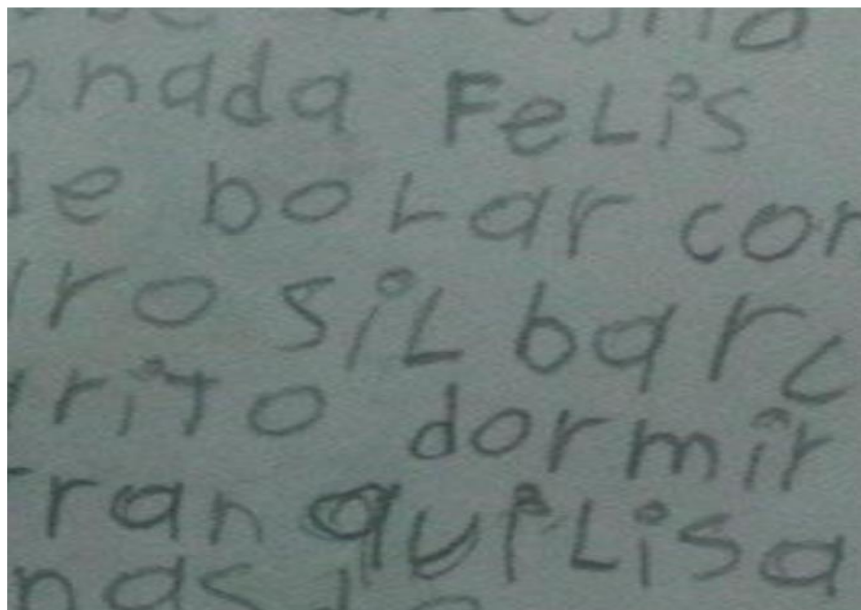 nada FeLis
e boLar con
ro siLbar c
rito dormir
ranquiLisa
nas